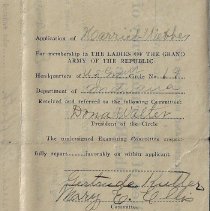 Application of Harriet
For membership in THE LADIES OF THE GRAND
ARMY OF THE REPUBLIC
Headquarters of Circle No.
Department of
Received and referred to the following Committee:
Dona Walter
President of the Circle
The undersigned Examining Committee
fully report favorably on within applicant.
Gertrude
Mary E.
Committee.